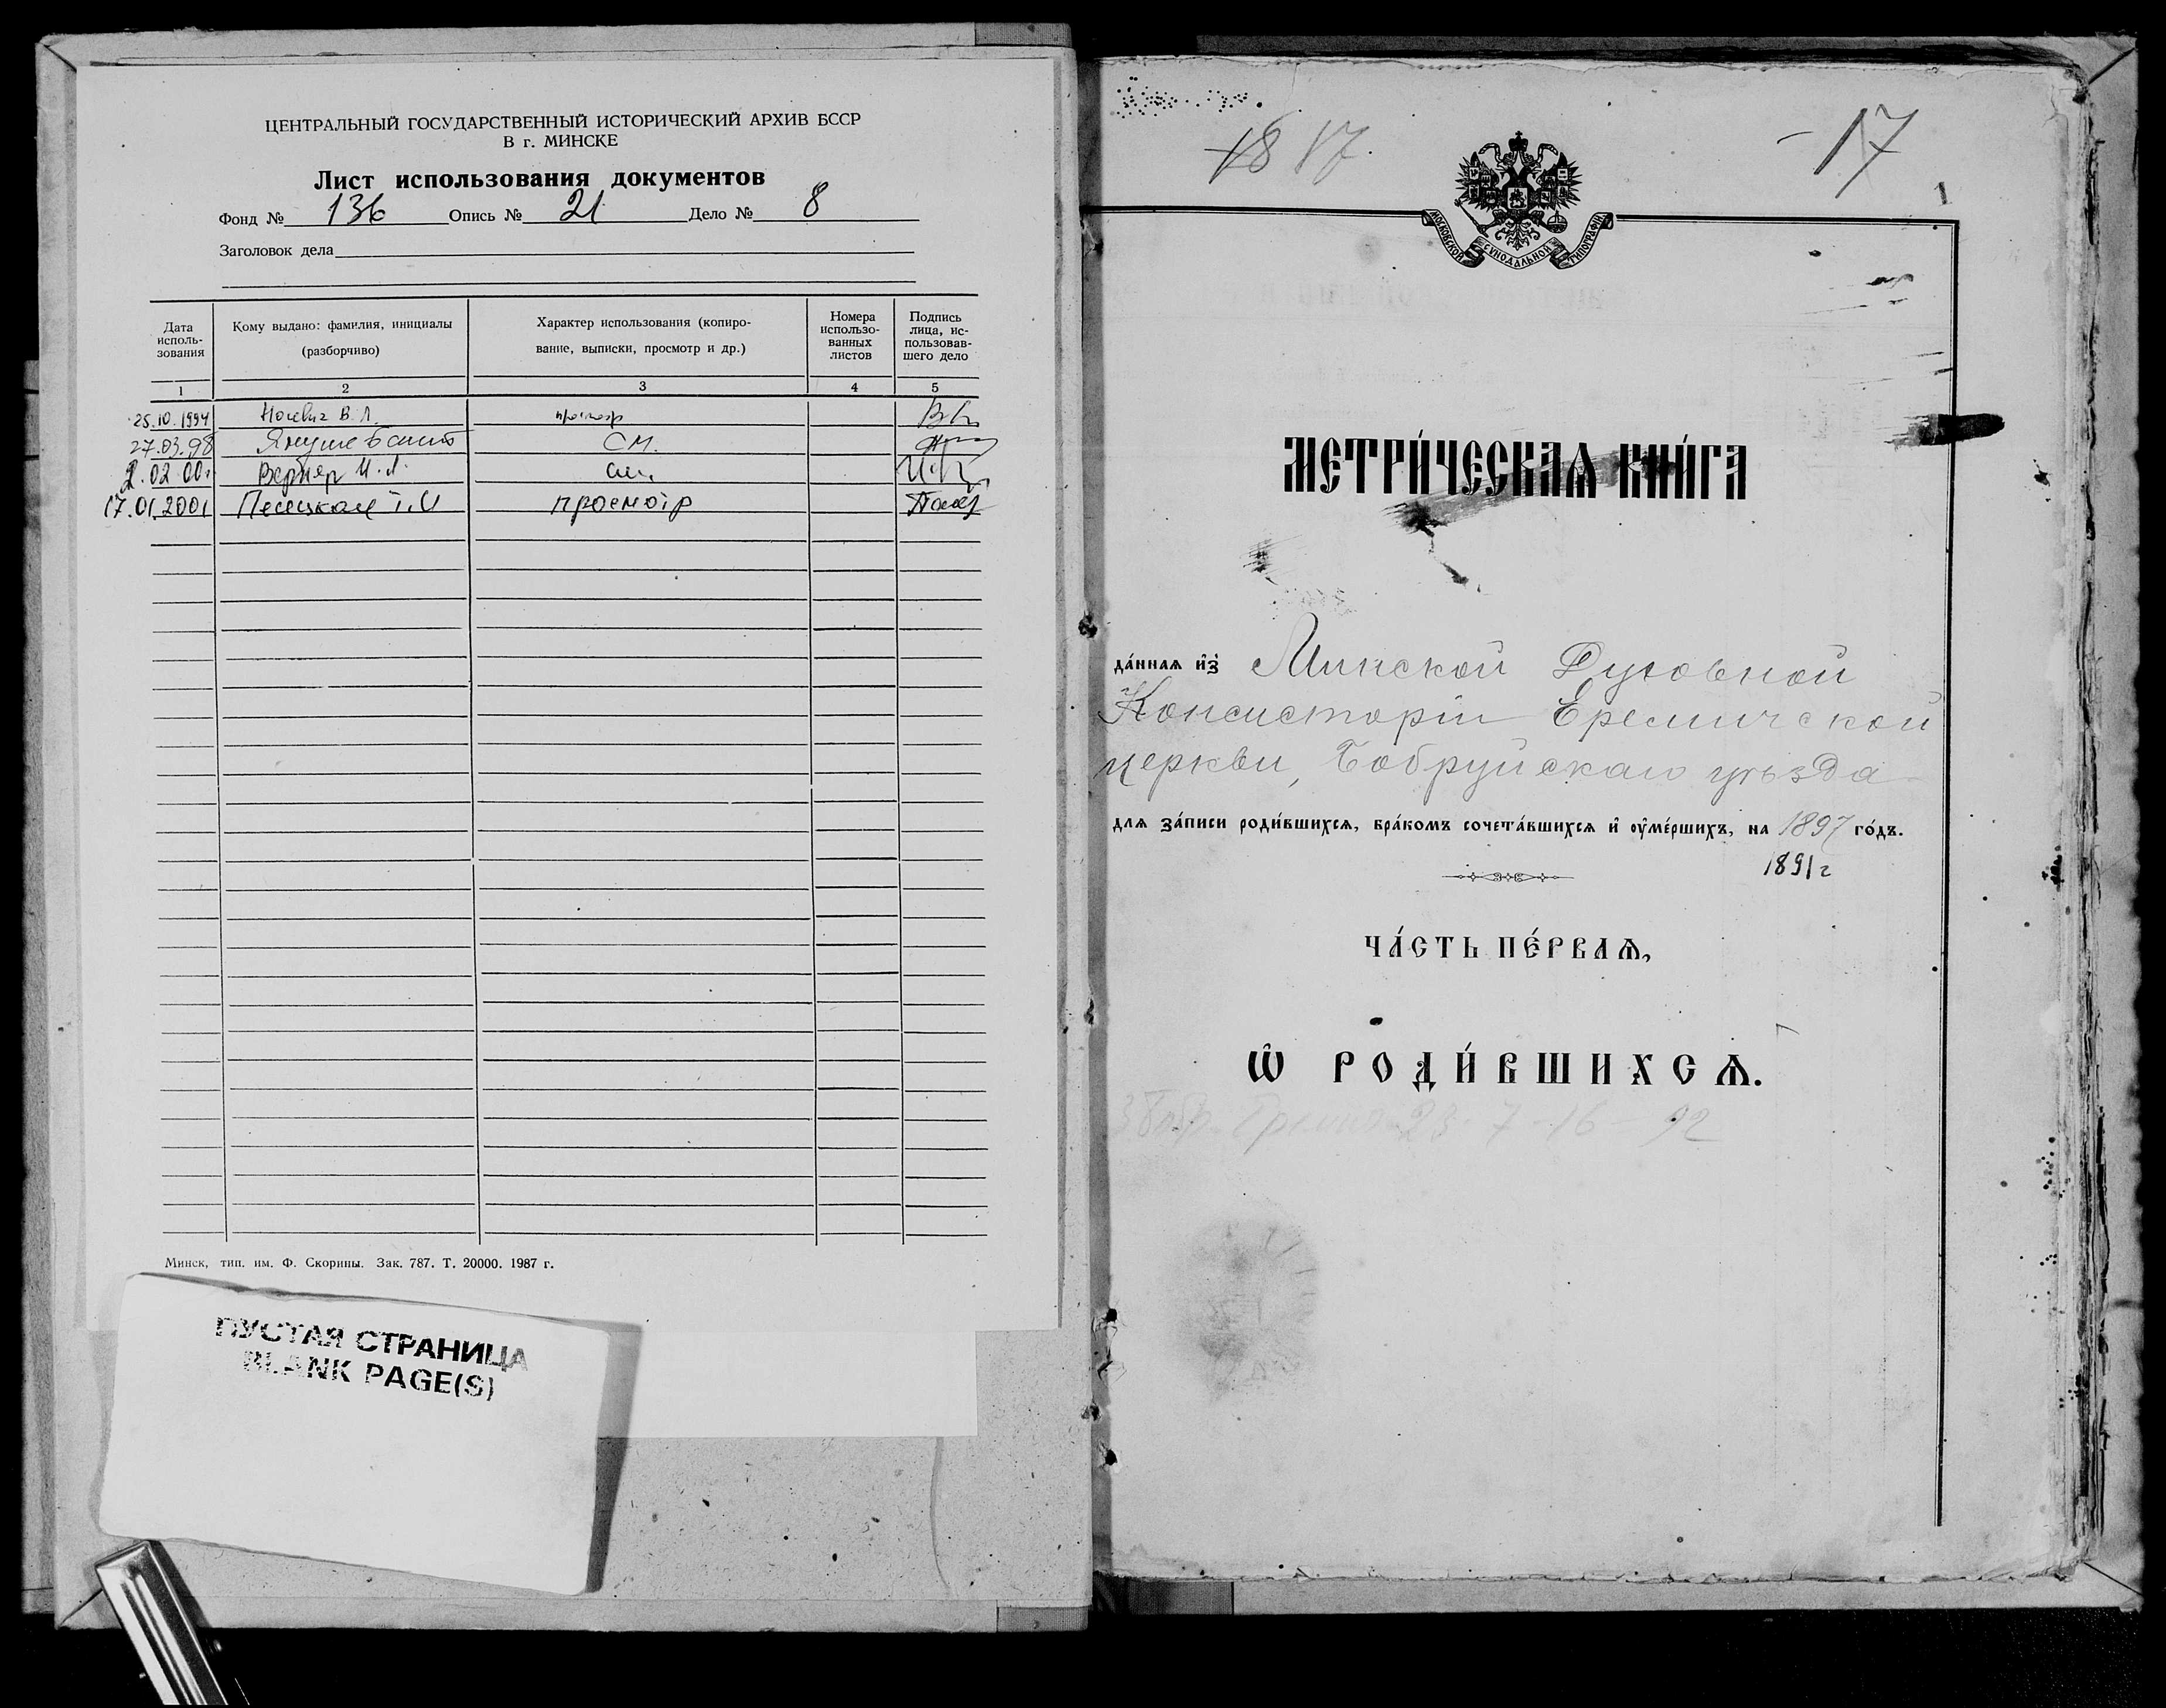 ЦЕНТРАЛЬНЫЙ ГОСУДАРСТВЕННЫЙ ИСТОРИЧЕСКИЙ АРХИВ БССР
В г. МИНСКЕ
Лист использования документов
Фонд № 136 Опись № 21 Дело № 8
Заголовок дела
Дата исполь-зования
Кому выдано: фамилия, инициалы (разборчиво)
Характер использования (копиро-вание, выписки, просмотр и др.)
Номера использо-ванных листов
Подпись лица, ис-пользовав-шего дело
1 2 3 4 5
25.10.1994 В.Л. просмотр
27.03.98 см.
2.02.00г Вернер И.Л. см.
17.01.2001 Т.И просмотр
Минск, тип. им. Ф. Скорины. Зак. 787. Т. 20000. 1987 г.
ПУСТАЯ СТРАНИЦА
BLANK PAGE(S)
17
1
МОСКОВСКОЙ СѴНОДАЛЬНОЙ ТИПОГРАФІИ
МЕТРИ́ЧЕСКАѦ КНИ́ГА
да́ннаѧ и҆з̾ Минской Духовной
Консисторіи Еремичской
церкви, Бобруйскаго уѣзда
длѧ за́писи роди́вшихсѧ, бра́комъ сочета́вшихсѧ и҆ ᲂу҆ме́ршихъ, на 1897 го́дъ.
1891 г
ЧА́СТЬ ПЕ́РВАѦ,
Ѽ РОДИ́ВШИХСѦ.